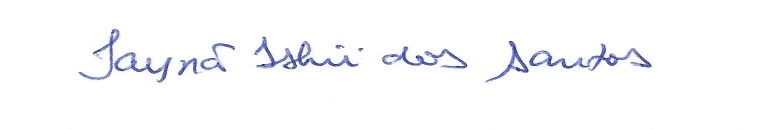 Tayná Ishii dos Santos